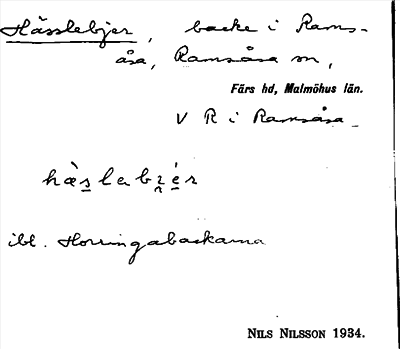 Hässlebjer, backe i Rams-
åsa, Ramsåsa sn,
Färs hd, Malmöhus län.
V R i Ramsåsa
hæ̀s̲lebɪ̯é̲r
ibl. Horringabackarna
NILS NILSSON 1934.